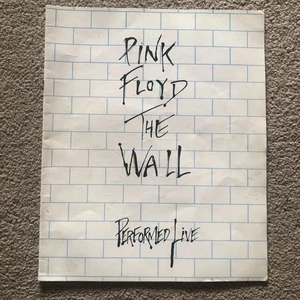 PINK
FLOYD
THE
WALL
PERFORMED LIVE